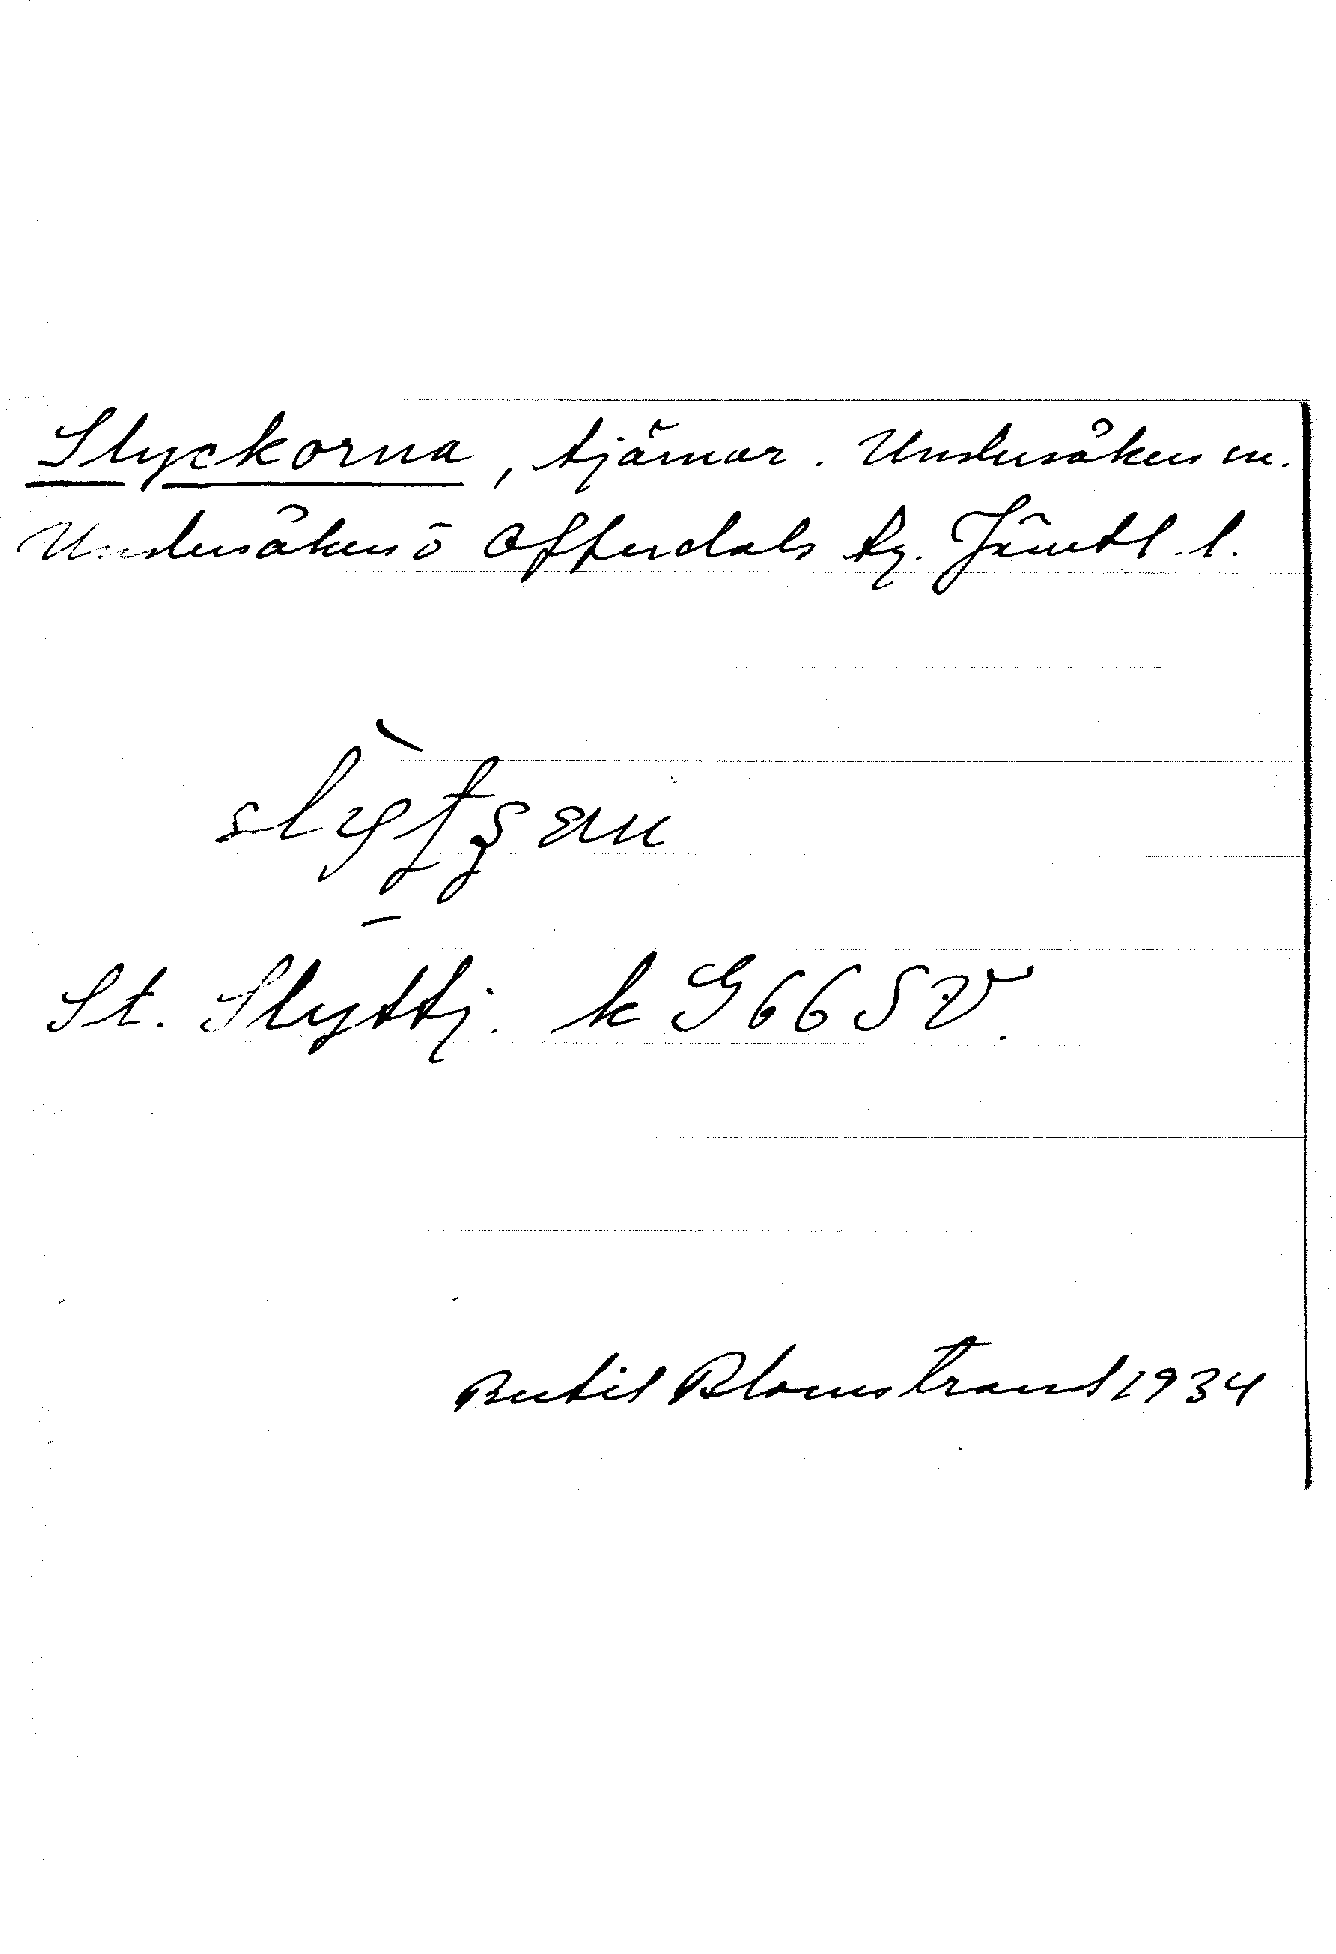 Slyckorna, tjärnar. Undersåkers sn.
Undersåkers o Offerdals tg. Jämtl. l.
St. Slyttj. k G66SV.
Bertil Blomstrand 1934